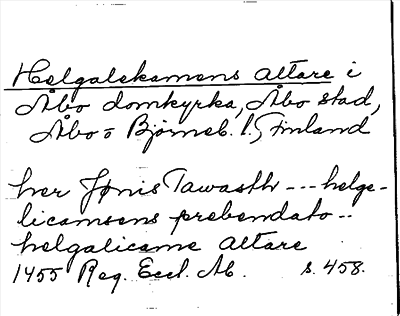 Helgalekamens altare i
Åbo domkyrka, Åbo stad,
Åbo o Björneb. l., Finland
her Jönis Tawasth --- helge-
licamsens prebendato --
helgalicame altare
1455 Reg. Eccl. Ab. s. 458.